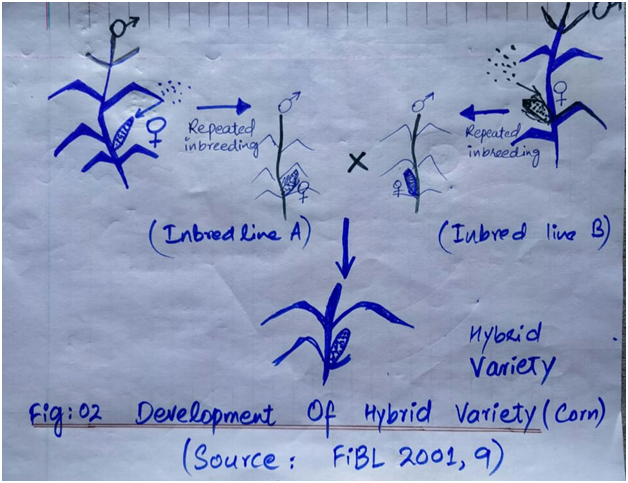 Repeated
inbreeding
Repeated
inbreeding
(Inbred line A)
×
(Inbred line B)
Hybrid
Variety
Fig:02 Development Of Hybrid Variety (Corn)
(Source: FiBL 2001, 9)